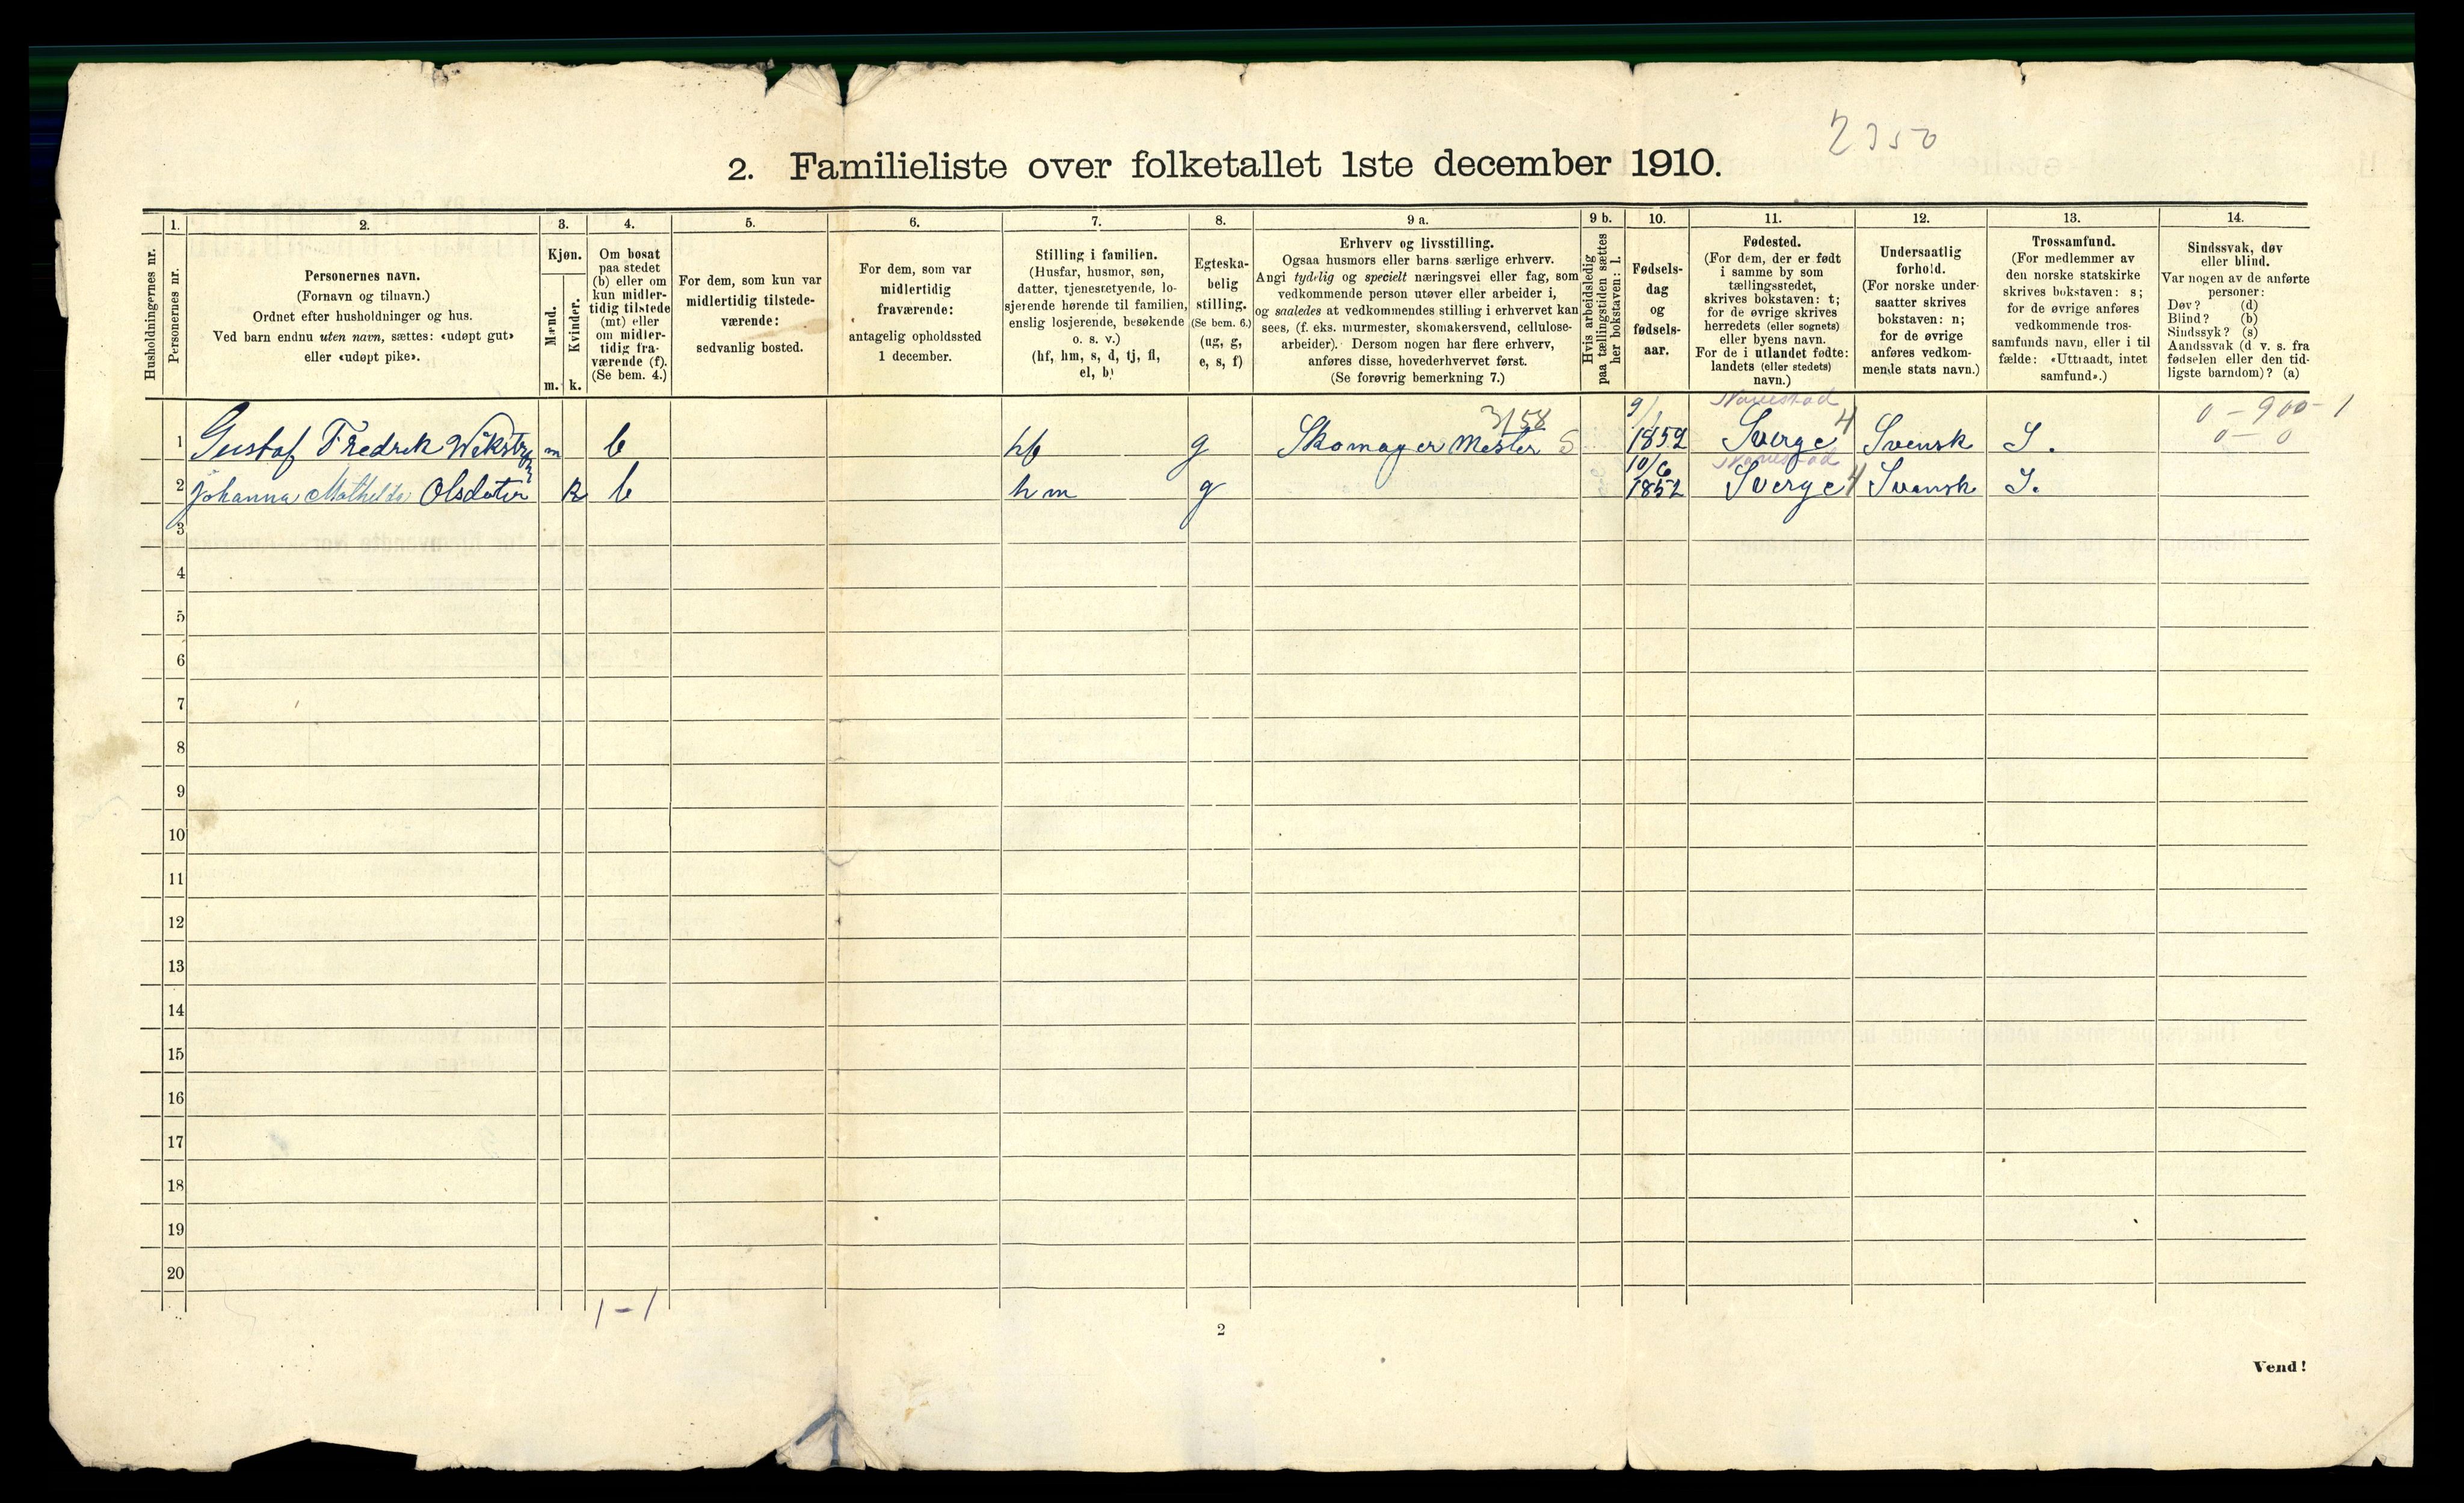 2350
2. Familieliste over folketallet 1ste december 1910.
Husholdningernes nr.
1.
Personernes nr.
2.
Personernes navn.
(Fornavn og tilnavn.)
Ordnet efter husholdninger og hus.
Ved barn endnu uten navn, sættes: «udøpt gut»
eller «udøpt pike».
3.
Kjøn.
Mænd.
Kvinder.
m.
k.
4.
Om bosat
paa stedet
(b) eller om
kun midler-
tidig tilstede
(mt) eller
om midler-
tidig fra-
værende (f).
(Se bem. 4.)
5.
For dem, som kun var
midlertidig tilstede-
værende:
sedvanlig bosted.
6.
For dem, som var
midlertidig
fraværende:
antagelig opholdssted
1 december.
7.
Stilling i familien.
(Husfar, husmor, søn,
datter, tjenestetyende, lo-
sjerende hørende til familien,
enslig losjerende, besøkende
o. s. v.)
(hf, hm, s, d, tj, fl,
el, b)
8.
Egteska-
belig
stilling.
(Se bem. 6.)
(ug, g,
e, s, f)
9 a.
Erhverv og livsstilling.
Ogsaa husmors eller barns særlige erhverv.
Angi tydelig og specielt næringsvei eller fag, som
vedkommende person utøver eller arbeider i,
og saaledes at vedkommendes stilling i erhvervet kan
sees, (f. eks. murmester, skomakersvend, cellulose-
arbeider). Dersom nogen har flere erhverv,
anføres disse, hovederhvervet først.
(Se forøvrig bemerkning 7.)
9 b.
Hvis arbeidsledig
paa tællingstiden sættes
her bokstaven: l.
10.
Fødsels-
dag
og
fødsels-
aar.
11.
Fødested.
(For dem, der er født
i samme by som
tællingsstedet,
skrives bokstaven: t;
for de øvrige skrives
herredets (eller sognets)
eller byens navn.
For de i utlandet fødte:
landets (eller stedets)
navn.)
12.
Undersaatlig
forhold.
(For norske under-
saatter skrives
bokstaven: n;
for de øvrige
anføres vedkom-
mende stats navn.)
13.
Trossamfund.
(For medlemmer av
den norske statskirke
skrives bokstaven: s;
for de øvrige anføres
vedkommende tros-
samfunds navn, eller i til
fælde: «Uttraadt, intet
samfund».)
14.
Sindssvak, døv
eller blind.
Var nogen av de anførte
personer:
Døv? (d)
Blind? (b)
Sindssyk? (s)
Aandssvak (d v. s. fra
fødselen eller den tid-
ligste barndom)? (a)
3/58
0 - 900 - 1
0 - 0
1 Gustaf Fredrik Wikstrøm m b hf g Skomager Mester S 9/1 1852 Sverge 4 Svensk S.
2 Johanna Mathilda Olsdater k b hm g 10/6 1852 Sverge 4 Svensk S.
3
4
5
6
7
8
9
10
11
12
13
14
15
16
17
18
19
20
1 - 1
2
Vend!